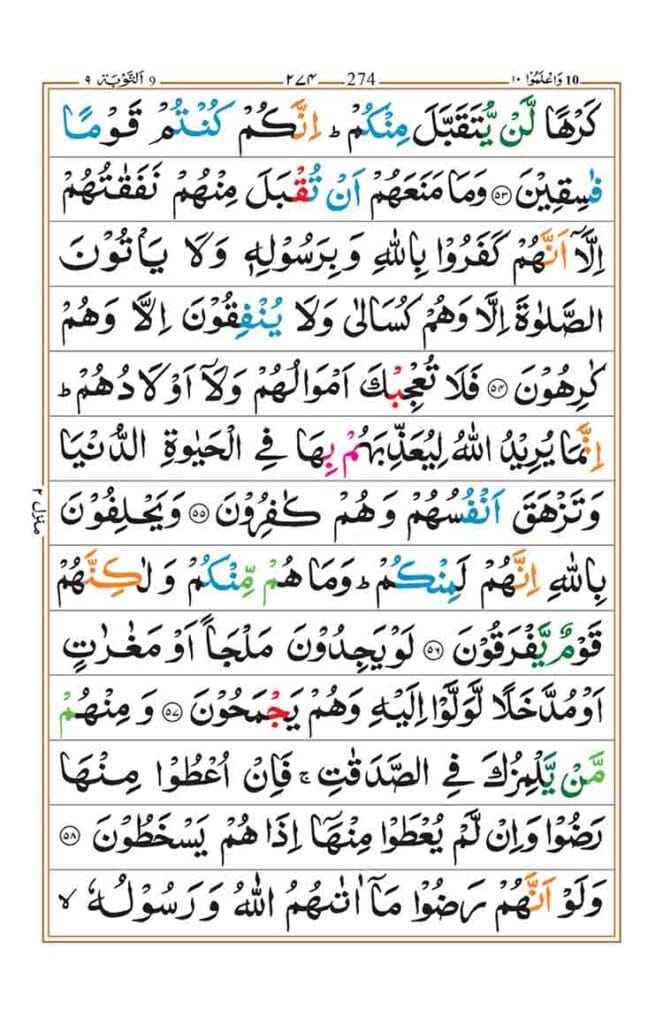 وَاعْلَمُوْۤا ١٠ 10 274 ٢٧٤ 9 اَلتَّوْبَة ٩
كَرْهًا لَّنْ يُّتَقَبَّلَ مِنْكُمْ ؕ اِنَّكُمْ كُنْتُمْ قَوْمًا
فٰسِقِيْنَ ﴿٥٣﴾ وَمَا مَنَعَهُمْ اَنْ تُقْبَلَ مِنْهُمْ نَفَقٰتُهُمْ
اِلَّاۤ اَنَّهُمْ كَفَرُوْا بِاللّٰهِ وَبِرَسُوْلِهٖ وَلَا يَاْتُوْنَ
الصَّلٰوةَ اِلَّا وَهُمْ كُسَالٰى وَلَا يُنْفِقُوْنَ اِلَّا وَهُمْ
كٰرِهُوْنَ ﴿٥٤﴾ فَلَا تُعْجِبْكَ اَمْوَالُهُمْ وَلَاۤ اَوْلَادُهُمْ ؕ
اِنَّمَا يُرِيْدُ اللّٰهُ لِيُعَذِّبَهُمْ بِهَا فِي الْحَيٰوةِ الدُّنْيَا
وَتَزْهَقَ اَنْفُسُهُمْ وَهُمْ كٰفِرُوْنَ ﴿٥٥﴾ وَيَحْلِفُوْنَ
بِاللّٰهِ اِنَّهُمْ لَمِنْكُمْ ؕ وَمَا هُمْ مِّنْكُمْ وَلٰكِنَّهُمْ
قَوْمٌ يَّفْرَقُوْنَ ﴿٥٦﴾ لَوْ يَجِدُوْنَ مَلْجَاً اَوْ مَغٰرٰتٍ
اَوْ مُدَّخَلًا لَّوَلَّوْا اِلَيْهِ وَهُمْ يَجْمَحُوْنَ ﴿٥٧﴾ وَمِنْهُمْ
مَّنْ يَّلْمِزُكَ فِي الصَّدَقٰتِ ۚ فَاِنْ اُعْطُوْا مِنْهَا
رَضُوْا وَاِنْ لَّمْ يُعْطَوْا مِنْهَاۤ اِذَا هُمْ يَسْخَطُوْنَ ﴿٥٨﴾
وَلَوْ اَنَّهُمْ رَضُوْا مَاۤ اٰتٰىهُمُ اللّٰهُ وَرَسُوْلُهٗ ۙ
منزل ٢